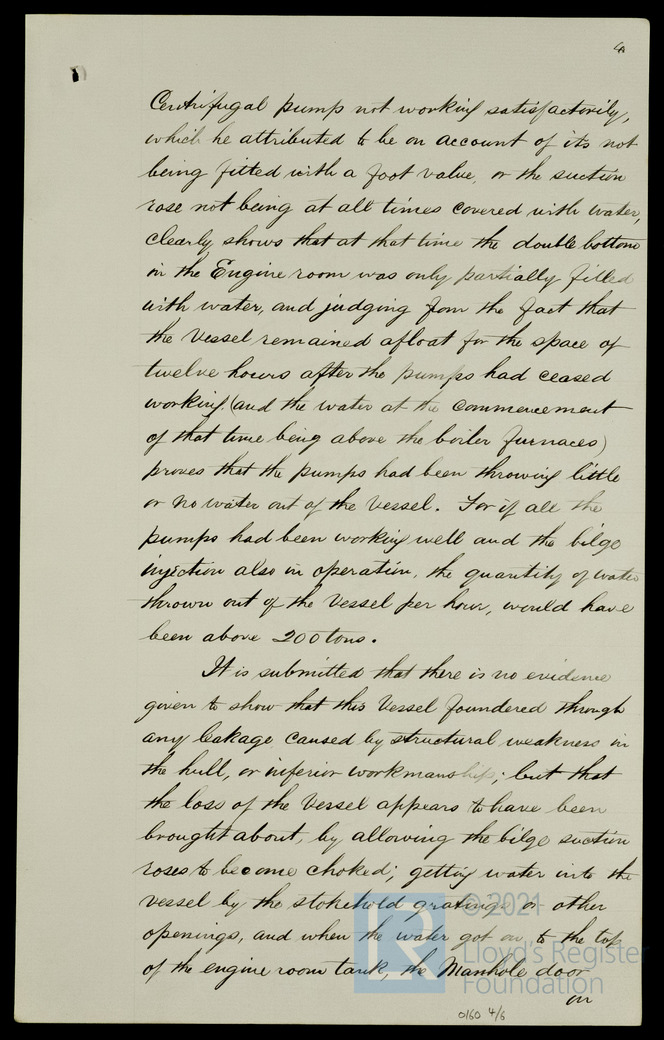 4
Centrifugal pump not working satisfactorily,
which he attributed to be on account of its not
being fitted with a foot valve, or the suction
rose not being at all times covered with water,
clearly shows that at that time the double bottom
in the Engine room was only partially filled
with water, and judging from the fact that
the Vessel remained afloat for the space of
twelve hours after the pumps had ceased
working (and the water at the commencement
of that time being above the boiler furnaces)
proves that the pumps had been throwing little
or no water out of the Vessel. For if all the
pumps had been working well and the bilge
injection also in operation, the quantity of water
thrown out of the Vessel per hour, would have
been above 200 tons.
It is submitted that there is no evidence
given to show that this Vessel foundered through
any leakage caused by structural weakness in
the hull, or inferior workmanship; but that
the loss of the Vessel appears to have been
brought about, by allowing the bilge suction
roses to become choked; getting water into the
vessel by the stokehold gratings or other
openings, and when the water got on to the top
of the engine room tank, the Manhole door
on
© 2021
Lloyd's Register
Foundation
LR
0160 4/6